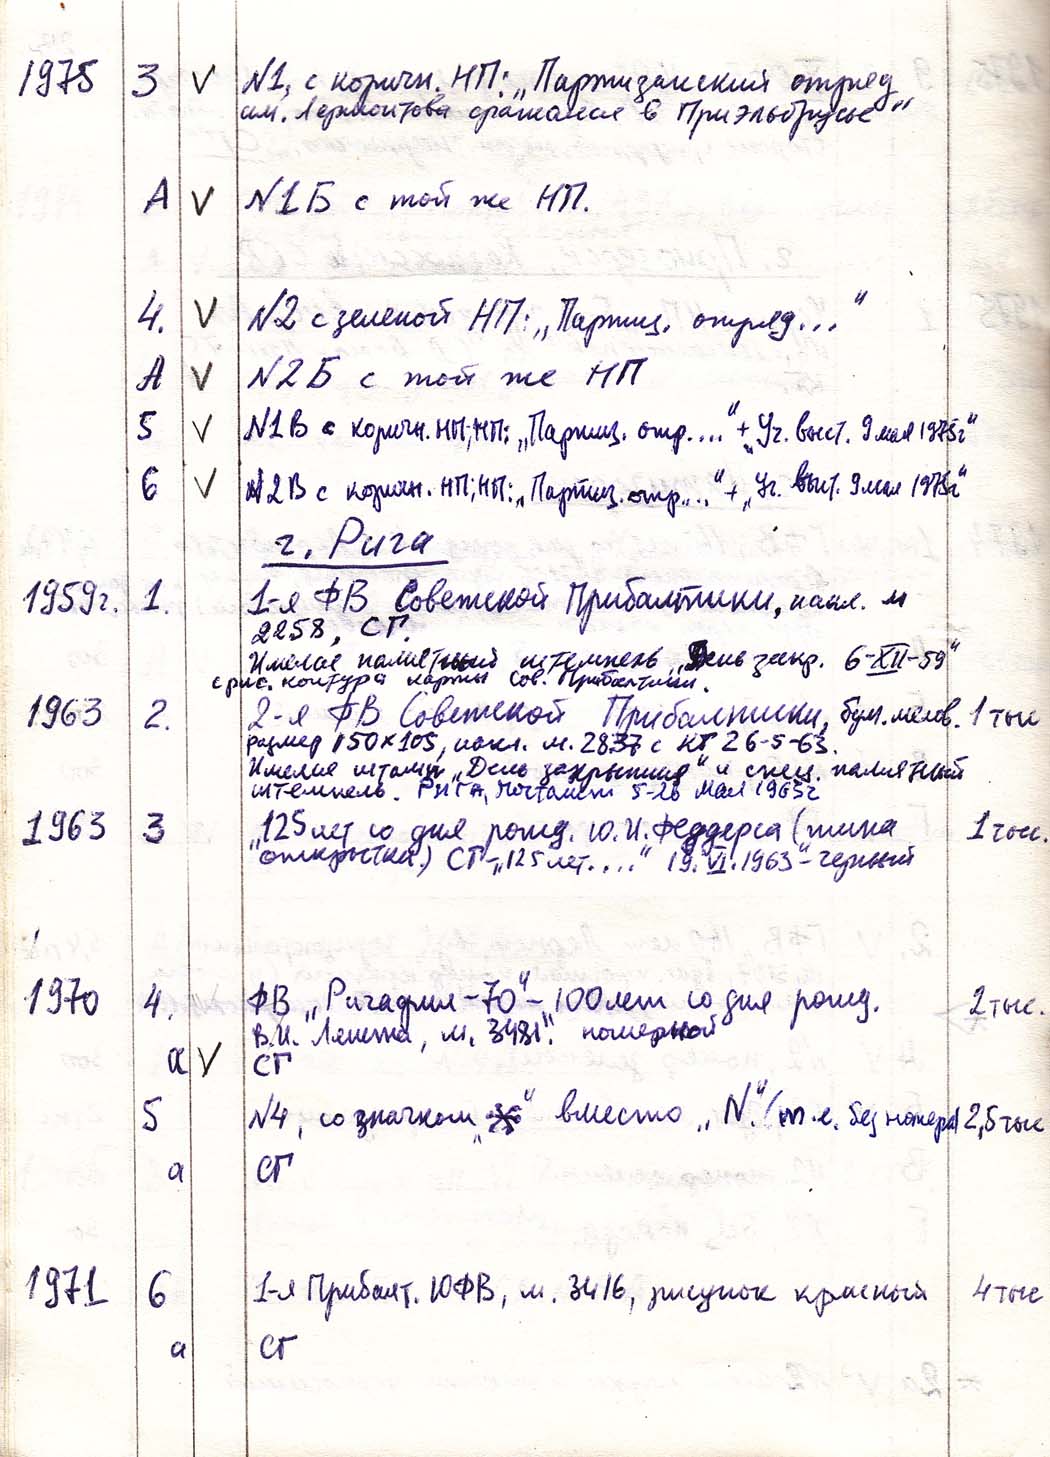 1975 3 V N1, с коричн. НП: „Партизанский отряд
им. Лермонтова сражался в Приэльбрусье"
А V N1Б с той же НП.
4. V N2 с зеленой НП: „Партиз. отряд..."
А V N2Б с той же НП
5 V N1В с коричн. НП; НП: „Партиз. отр...." + „Уч. выст. 9 мая 1975г"
6 V N2В с коричн. НП; НП: „Партиз. отр...." + „Уч. выст. 9 мая 1975г"
г. Рига
1959г. 1. 1-я ФВ Советской Прибалтики, накл. м
2258, СГ.
Имелся памятный штемпель „День закр. 6-XII-59"
с рис. контура карты Сов. Прибалтики.
1963 2. 2-я ФВ Советской Прибалтики, бум. мелов. 1 тыс
размер 150×105, накл. м. 2837 с КГ 26-5-63.
Имелся штамп „День закрытия" и спец. памятный
штемпель. РИГА, почтамт 5-26 мая 1963г
1963 3 „125 лет со дня рожд. Ю.И. Феддерса (типа 1 тыс.
открытка.) СГ-„125 лет...." 19.VI.1963"- черный
1970 4. ФВ „Ригафил-70"-„100 лет со дня рожд. 2 тыс.
В.И. Ленина, м. 3481". номерной
а V СГ
5 N4, со значком „*" вместо „N."(т.е. без номера) 2,5 тыс
а СГ
1971 6 1-я Прибалт. ЮФВ, м. 3416, рисунок красный 4 тыс
а СГ